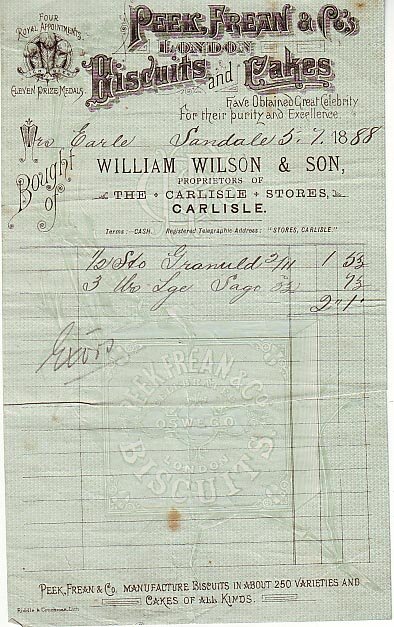 FOUR
ROYAL APPOINTMENTS
ELEVEN PRIZE MEDALS
PEEK, FREAN & Co's
LONDON
Biscuits and Cakes
Have Obtained Great Celebrity
For their purity and Excellence.
Mrs Earle Sandale 5. 7. 1888
Bought of
WILLIAM WILSON & SON,
PROPRIETORS OF
THE CARLISLE STORES,
CARLISLE.
Terms:—CASH. Registered Telegraphic Address: "STORES, CARLISLE."
1/2 Sto Granuld 2/11 1 5½
3 lbs Lge Sago 2½ 7½
2 " 1
PEEK, FREAN & CO.
OSWEGO
LONDON
BISCUITS
PEEK, FREAN & Co. MANUFACTURE BISCUITS IN ABOUT 250 VARIETIES AND
CAKES OF ALL KINDS.
Riddle & Couchman, Lith.